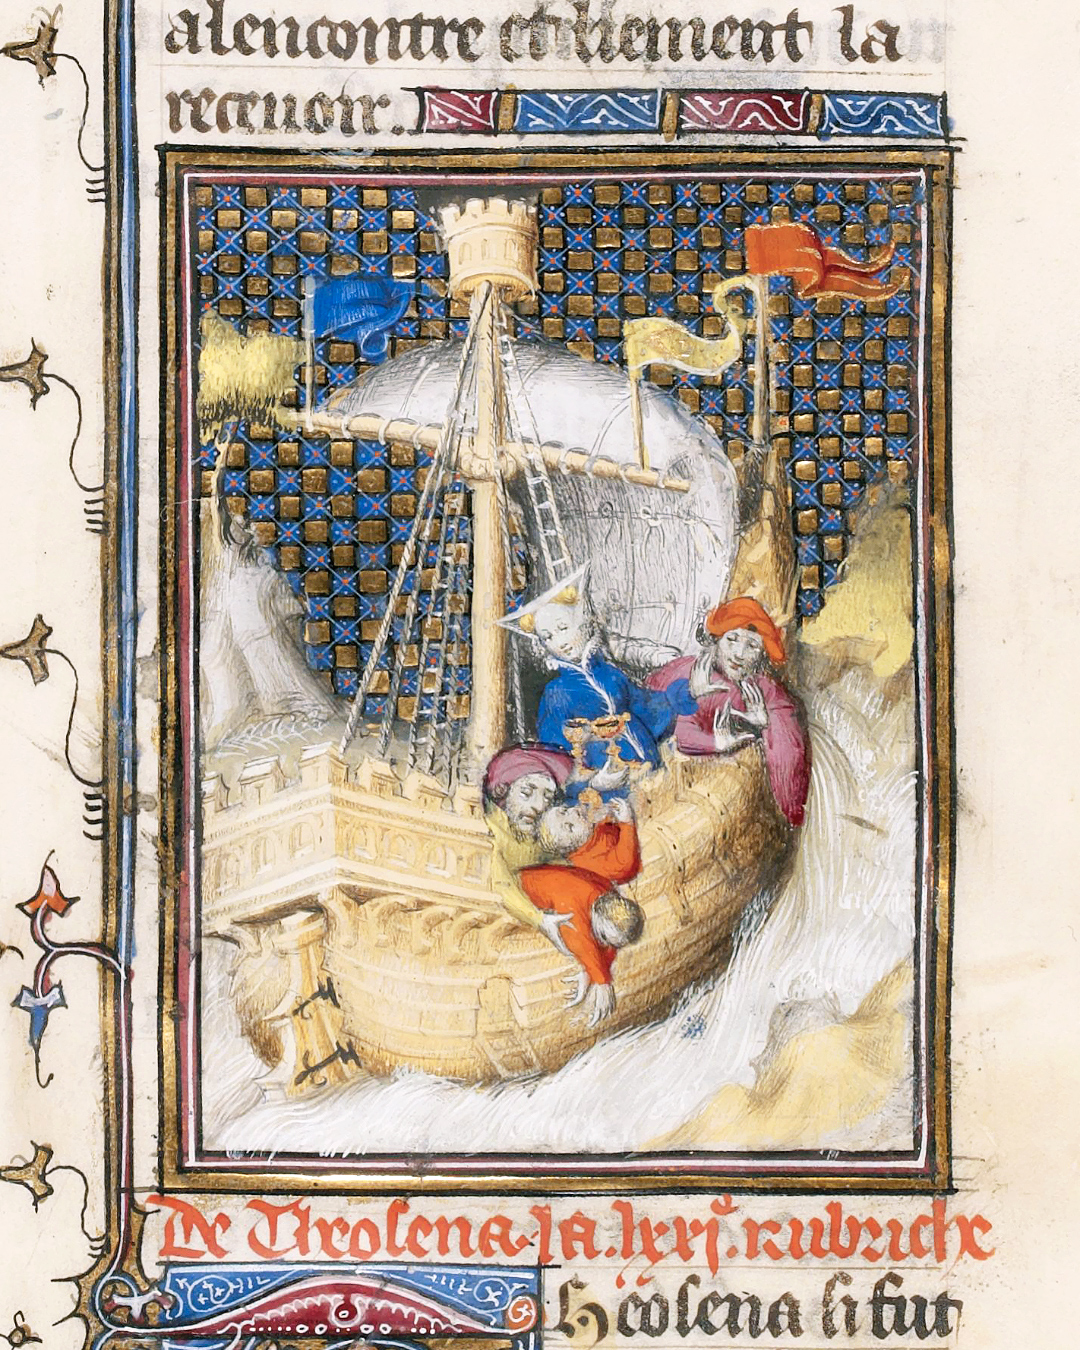 alencontre et li
receuoir.
De Theosena. la .lxxi⁰. rubriche
Heosena si fut